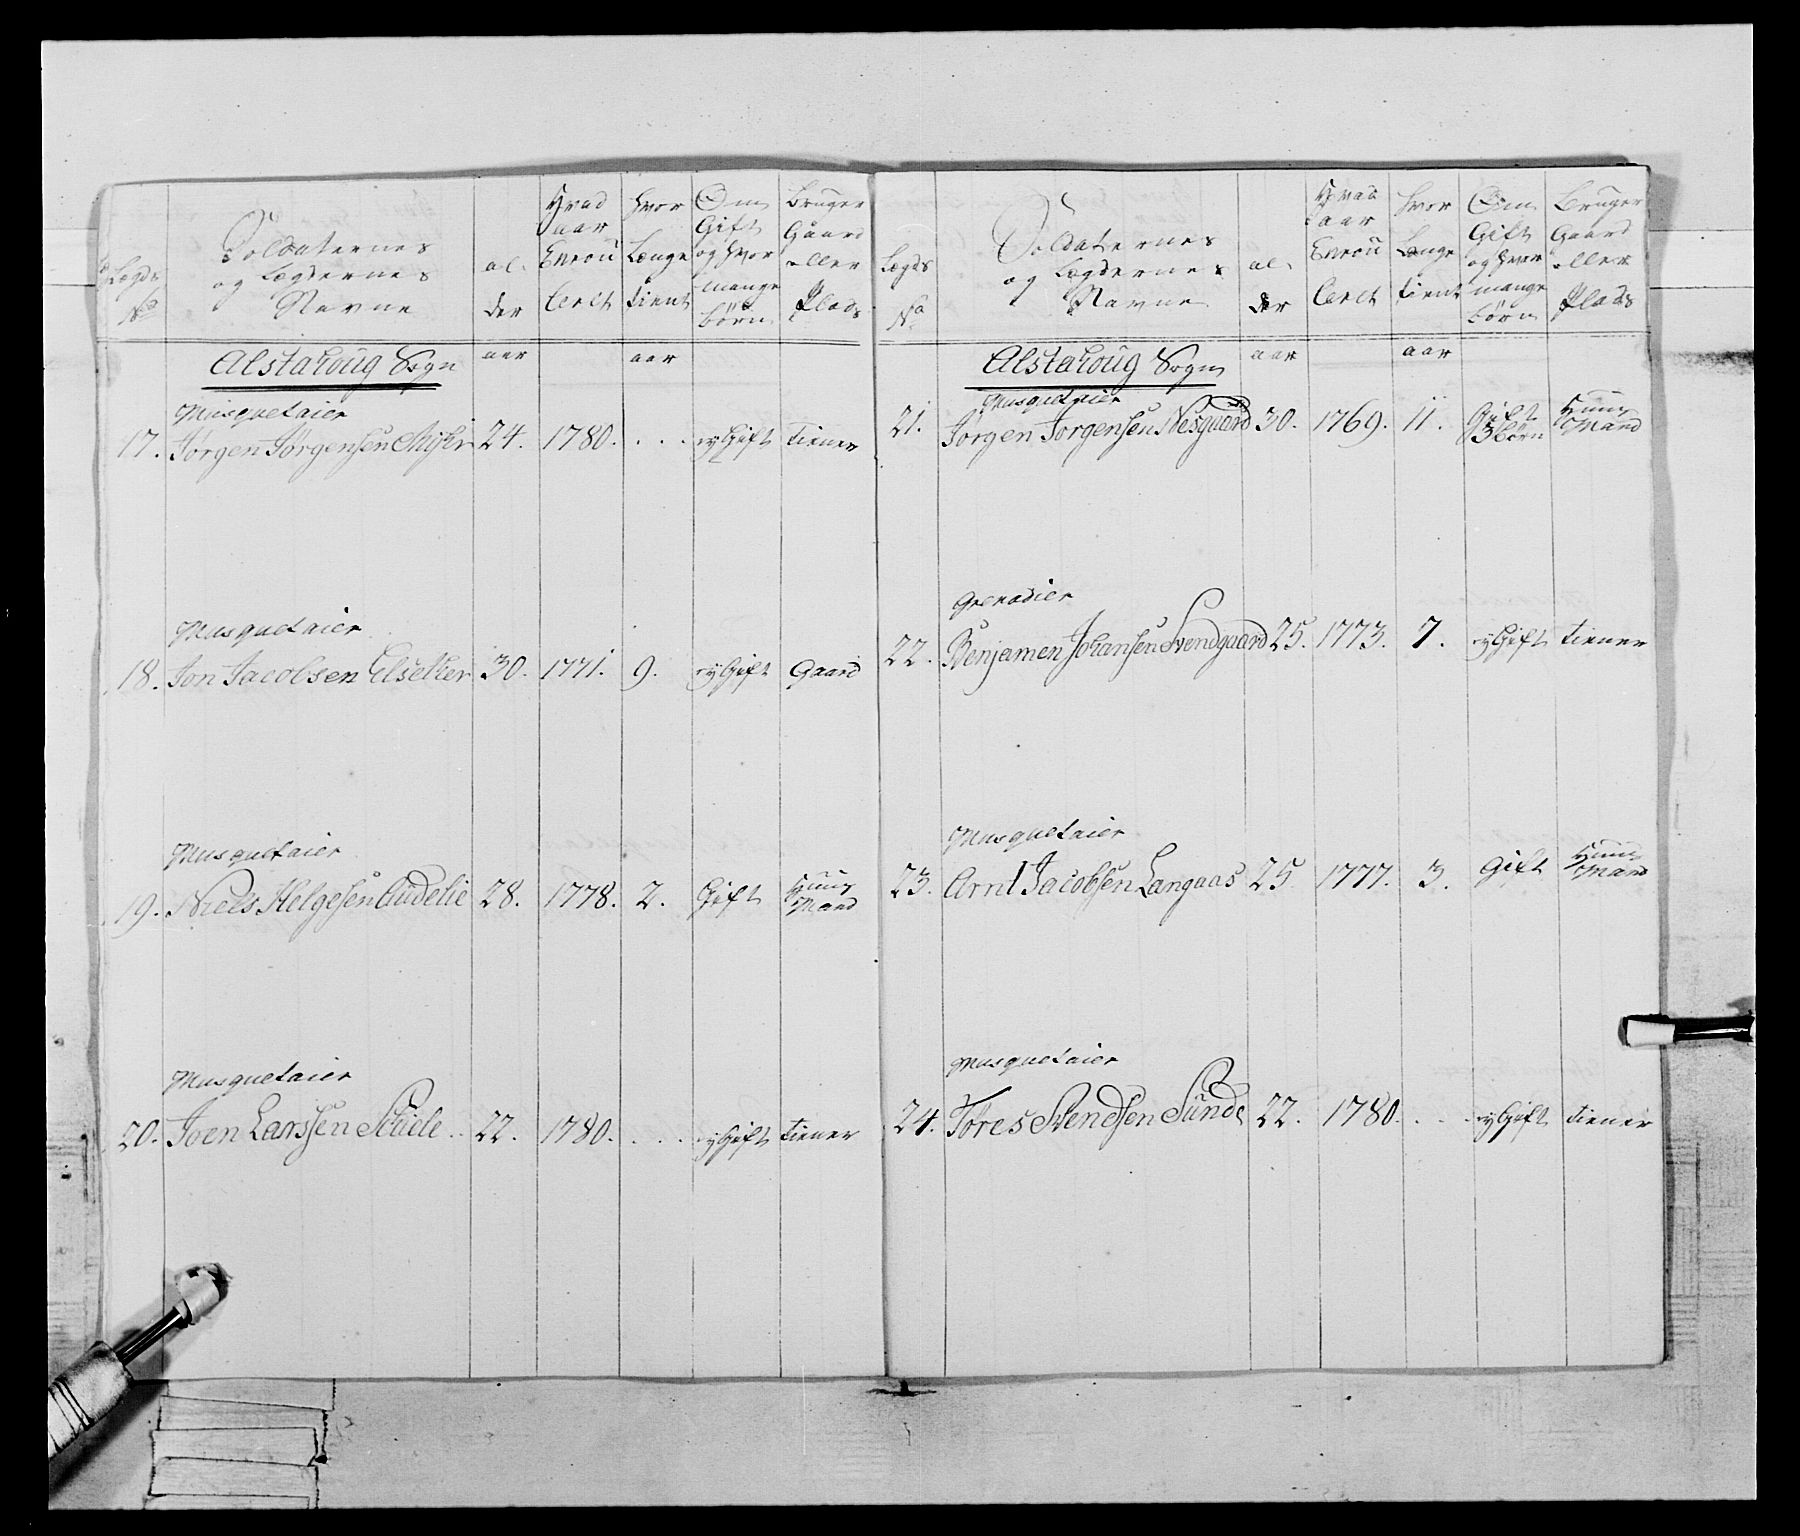 Lægds No | Soldaternes og Lægdernes Navne | al- der | Hvad aar Enroulleret | Hvor Længe tient | Om Gift og hvor mange børn | Bruger Gaard eller Plads
Alstahoug Sogn | aar | aar
Musquetaier
17. Jørgen Jørgensen | 24. | 1780. | . . . | ugift | tiener
Musquetaier
18. Jon Jacobsen Elsether | 30. | 1771. | 9. | ugift | Gaard
Musquetaier
19. Niels Helgesen | 28. | 1778. | 2. | Gift | Huus Mand
Musquetaier
20. Joen Larssen | 22. | 1780. | . . . | ugift | tiener
Lægds No | Soldaternes og Lægdernes Navne | al- der | Hvad aar Enroulleret | Hvor Længe tient | Om Gift og hvor mange børn | Bruger Gaard eller Plads
Alstahoug Sogn | aar | aar
Musquetaier
21. Jørgen Jørgensen Nesgaard | 30. | 1769. | 11. | Gift 3 børn | Huus Mand
Grenadier
22. Benjamen Johansen Svendgaard | 25. | 1773. | 7. | ugift | tiener
Musquetaier
23. Arnt Jacobsen Langaas | 25 | 1777. | 3. | Gift | Huus Mand
Musquetaier
24. Tores Svendsen Sunde | 22. | 1780. | . . . | ugift | tiener